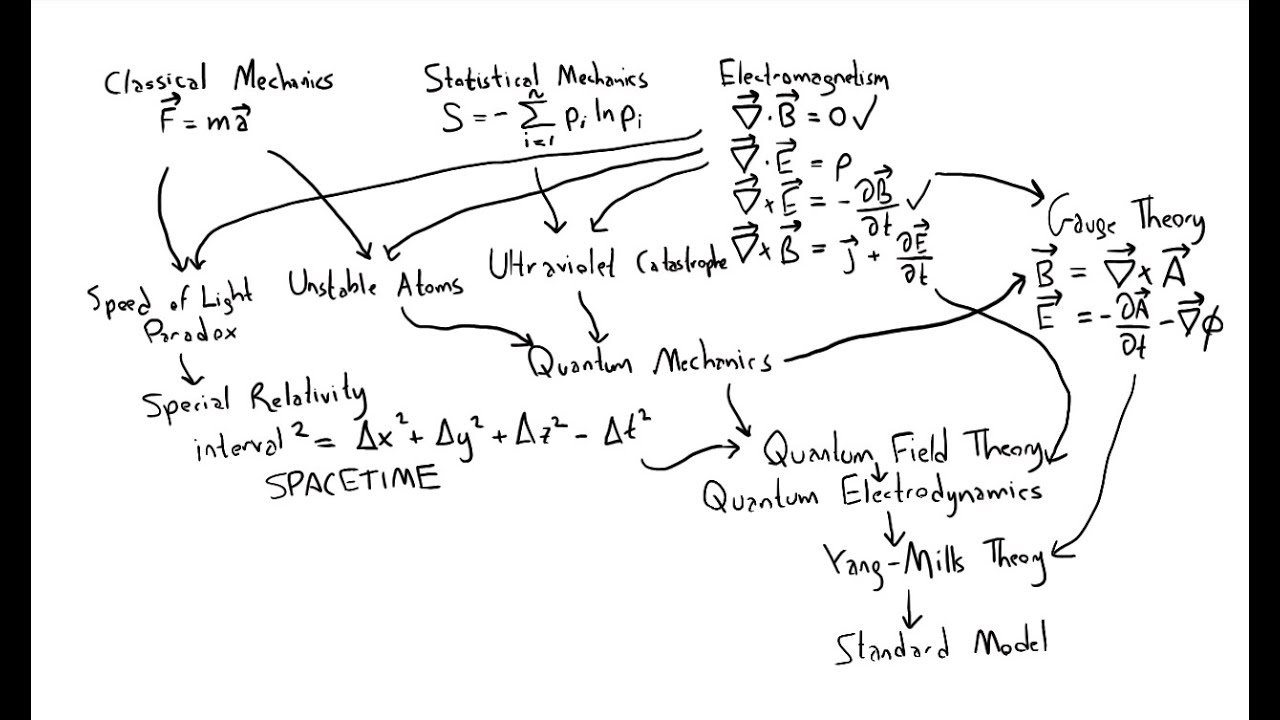 Classical Mechanics
F⃗ = ma⃗
Statistical Mechanics
S = - ∑_{i=1}^{n} p_i ln p_i
Electromagnetism
∇⃗ · B⃗ = 0 ✓
∇⃗ · E⃗ = ρ
∇⃗ × E⃗ = - ∂B⃗/∂t ✓
∇⃗ × B⃗ = J⃗ + ∂E⃗/∂t
Gauge Theory
B⃗ = ∇⃗ × A⃗
E⃗ = - ∂A⃗/∂t - ∇⃗ϕ
Speed of Light
Paradox
Unstable Atoms
Ultraviolet Catastrophe
Quantum Mechanics
Special Relativity
interval² = Δx² + Δy² + Δz² - Δt²
SPACETIME
Quantum Field Theory
Quantum Electrodynamics
Yang-Mills Theory
Standard Model